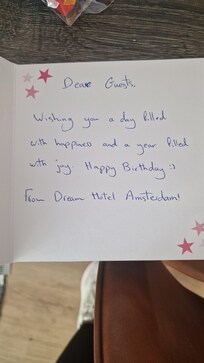 Dear Guest,
Wishing you a day filled
with happiness and a year filled
with joy Happy Birthday :)
From Dream Hotel Amsterdam!